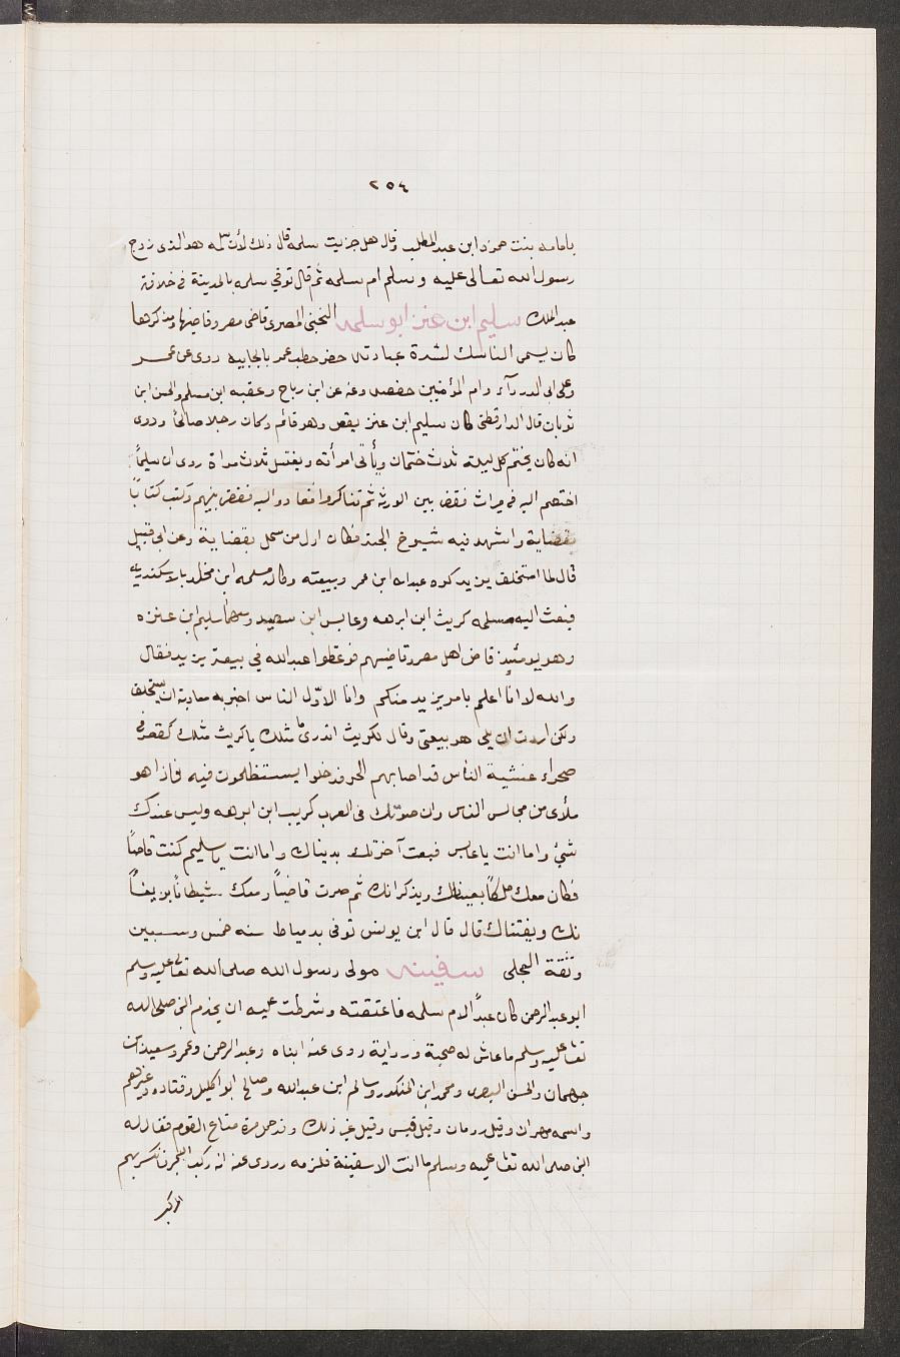 ٢٥٤
بامامه بنت حمزه ابن عبد المطلب وقال هل جزيت سلمه قال ذلك لأن سلمه هو الذى زوج
رسول الله تعالى عليه وسلم ام سلمه ثم قال توفي سلمه بالمدينة في خلافة
عبد الملك سليم ابن عنز ابو سلمه التجيبى المصرى قاضى مصر وقاضيها ومذكرها
كان يسمى الناسك لشدة عبادته حضر خطبه عمر بالجابيه روى عن عمر
وعلى ابى الدرداء وام المؤمنين حفصه وعنه عن ابن رباح وعقبه ابن مسلم والحسن ابن
ثوبان قال الدارقطنى كان سليم ابن عنز يقص وهو قائم وكان رجلا صالحاً وروى
انه كان يختم كل ليله ثلاث ختمات ويأتى امرأته ويغتسل ثلاث مراة روى ان سليماً
اختصم اليه في ميراث فقضا بين الورثه ثم تناكروا فعادوا اليه فقضا بينهم وكتب كتاباً
بقضاية واشهد فيه شيوخ الجند فكان اول من سجل بقضاية وعن ابى قبيل
قال لما استخلف يزيد كره عبدالله ابن عمر وبيعته وكان مسلمه ابن مخلد بالاسكندريه
فبعث اليه مسلمه كريث ابن ابرهه وعابس ابن سعيد ومعهما سليم ابن عنزه
وهو يومئيذ قاض اهل مصر وقاضيهم فوعظوا عبدالله في بيعة يزيد فقال
والله لا انا اعلم بامر يزيد منكم وانا لاوّل الناس اخبر به معاوية ان يستخلف
ولكن اردت ان يلى هو بيعتى وقال لكريث اتدرى ما مثلك ياكريث مثلك كقصر في
صحراء غشية الناس قد اصابهم الحر فدخلوا يستظلون فيه فاذا هو
ملأى من مجالس الناس وان صوتك في العرب كريب ابن ابرهه وليس عندك
شئ واما انت ياعابس فبعت آخرتك بدنياك واما انت ياسليم كنت قاصاً
فكان معك ملكاً يعينانك ويذكرانك ثم صرت قاضياً ومعك شيطاناً يزيغا
نك ويفتناك قال قال ابن يونس توفى بدمياط سنه خمس وسبعين
وثقة العجلى سفينه مولى رسول الله صلى الله تعالى عليه وسلم
ابو عبد الرحمن كان عبداً لام سلمه فاعتقته وشرطت عليه ان يخدم النبى صلى الله
تعالى عليه وسلم ما عاش له صحبة ورواية روى عنه ابناه وعبد الرحمن وعمر وسعيد ابن
جهمان والحسن البصرى ومحمد ابن المنكدر وسالم ابن عبدالله وصالح ابو الخليل وقتاده وغيرهم
واسمه مهران وقيل رومان وقيل قيس وقيل غير ذلك وقد حمل مرة متاع القوم فقال له
النبى صلى الله تعالى عليه وسلم ما انت الا سفينة فلزمه وروى عنه انه ركب البحر فانكسر بهم
المركب